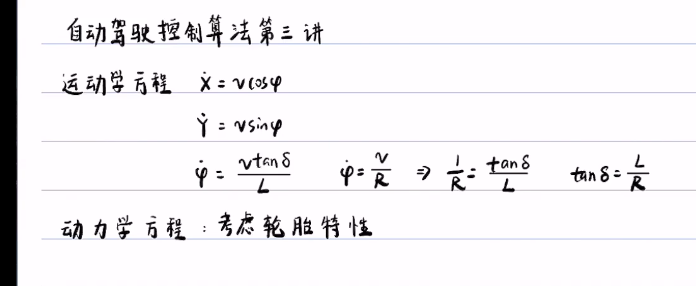 自动驾驶控制算法第三讲
运动学方程 Ẋ = vcosφ
Ẏ = vsinφ
φ̇ = vtanδ/L φ̇ = v/R ⇒ 1/R = tanδ/L tanδ = L/R
动力学方程：考虑轮胎特性